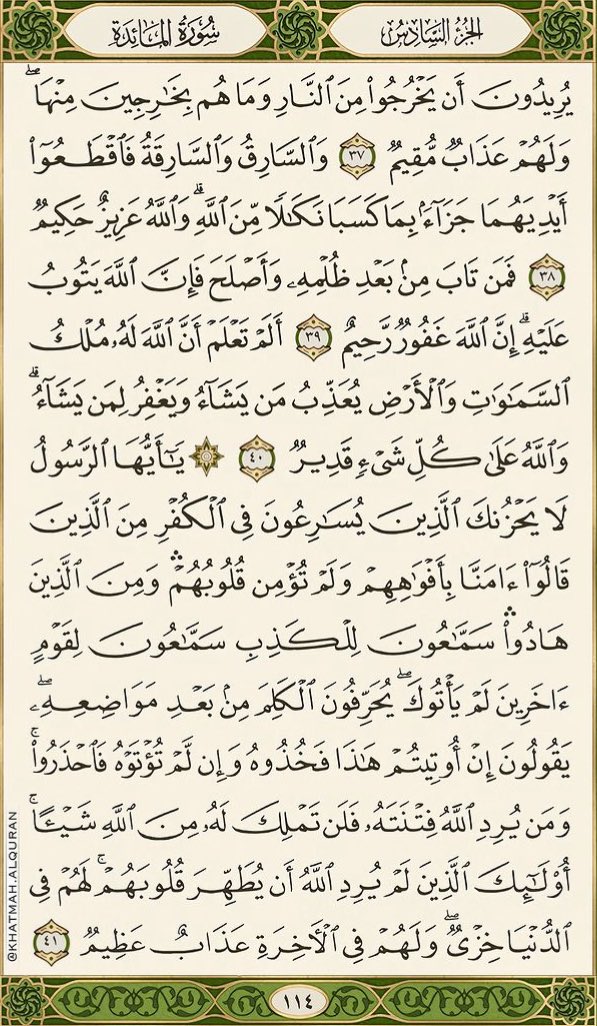 الجزء السادس
سورة المائدة
يُرِيدُونَ أَن يَخۡرُجُواْ مِنَ ٱلنَّارِ وَمَا هُم بِخَٰرِجِينَ مِنۡهَاۖ
وَلَهُمۡ عَذَابٞ مُّقِيمٞ ٣٧ وَٱلسَّارِقُ وَٱلسَّارِقَةُ فَٱقۡطَعُوٓاْ
أَيۡدِيَهُمَا جَزَآءَۢ بِمَا كَسَبَا نَكَٰلٗا مِّنَ ٱللَّهِۗ وَٱللَّهُ عَزِيزٌ حَكِيمٞ
٣٨ فَمَن تَابَ مِنۢ بَعۡدِ ظُلۡمِهِۦ وَأَصۡلَحَ فَإِنَّ ٱللَّهَ يَتُوبُ
عَلَيۡهِۚ إِنَّ ٱللَّهَ غَفُورٞ رَّحِيمٌ ٣٩ أَلَمۡ تَعۡلَمۡ أَنَّ ٱللَّهَ لَهُۥ مُلۡكُ
ٱلسَّمَٰوَٰتِ وَٱلۡأَرۡضِ يُعَذِّبُ مَن يَشَآءُ وَيَغۡفِرُ لِمَن يَشَآءُۗ
وَٱللَّهُ عَلَىٰ كُلِّ شَيۡءٖ قَدِيرٞ ٤٠ ۞ يَٰٓأَيُّهَا ٱلرَّسُولُ
لَا يَحۡزُنكَ ٱلَّذِينَ يُسَٰرِعُونَ فِي ٱلۡكُفۡرِ مِنَ ٱلَّذِينَ
قَالُوٓاْ ءَامَنَّا بِأَفۡوَٰهِهِمۡ وَلَمۡ تُؤۡمِن قُلُوبُهُمۡۛ وَمِنَ ٱلَّذِينَ
هَادُواْۛ سَمَّٰعُونَ لِلۡكَذِبِ سَمَّٰعُونَ لِقَوۡمٍ
ءَاخَرِينَ لَمۡ يَأۡتُوكَۖ يُحَرِّفُونَ ٱلۡكَلِمَ مِنۢ بَعۡدِ مَوَاضِعِهِۦۖ
يَقُولُونَ إِنۡ أُوتِيتُمۡ هَٰذَا فَخُذُوهُ وَإِن لَّمۡ تُؤۡتَوۡهُ فَٱحۡذَرُواْۚ
وَمَن يُرِدِ ٱللَّهُ فِتۡنَتَهُۥ فَلَن تَمۡلِكَ لَهُۥ مِنَ ٱللَّهِ شَيۡـًٔاۚ
أُوْلَٰٓئِكَ ٱلَّذِينَ لَمۡ يُرِدِ ٱللَّهُ أَن يُطَهِّرَ قُلُوبَهُمۡۚ لَهُمۡ فِي
ٱلدُّنۡيَا خِزۡيٞۖ وَلَهُمۡ فِي ٱلۡأٓخِرَةِ عَذَابٌ عَظِيمٞ ٤١
١١٤
@KHATMAH.ALQURAN